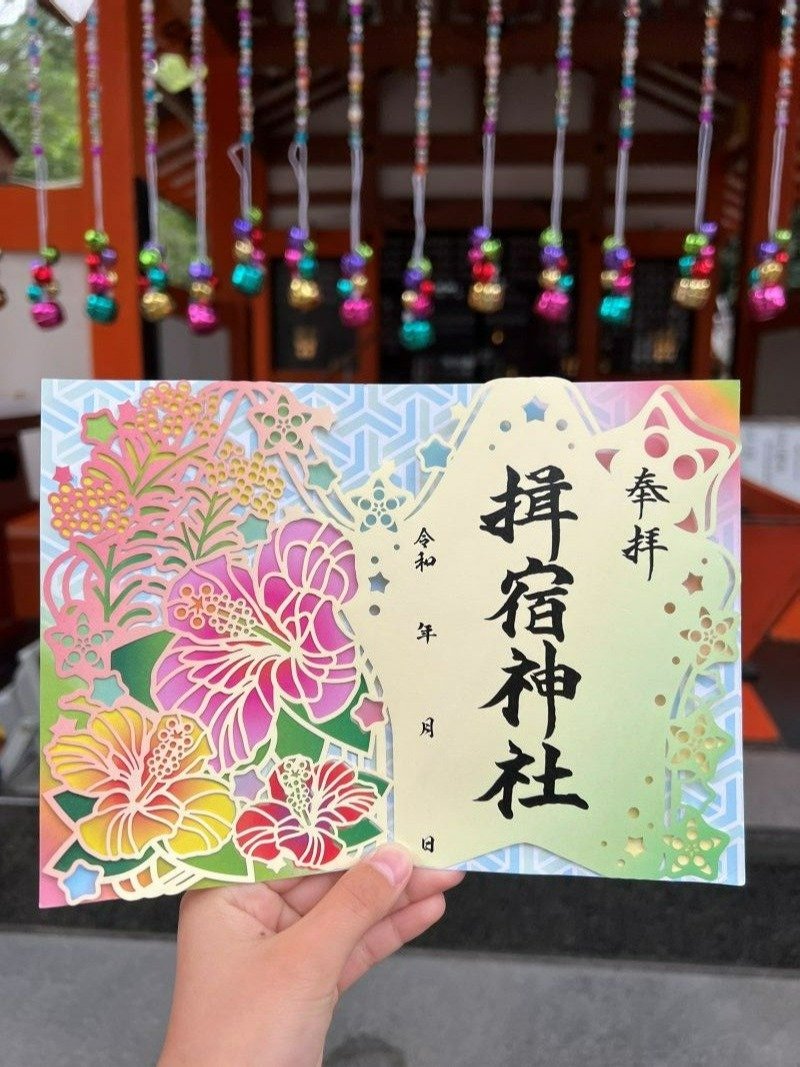 奉拝
揖宿神社
令和 年 月 日